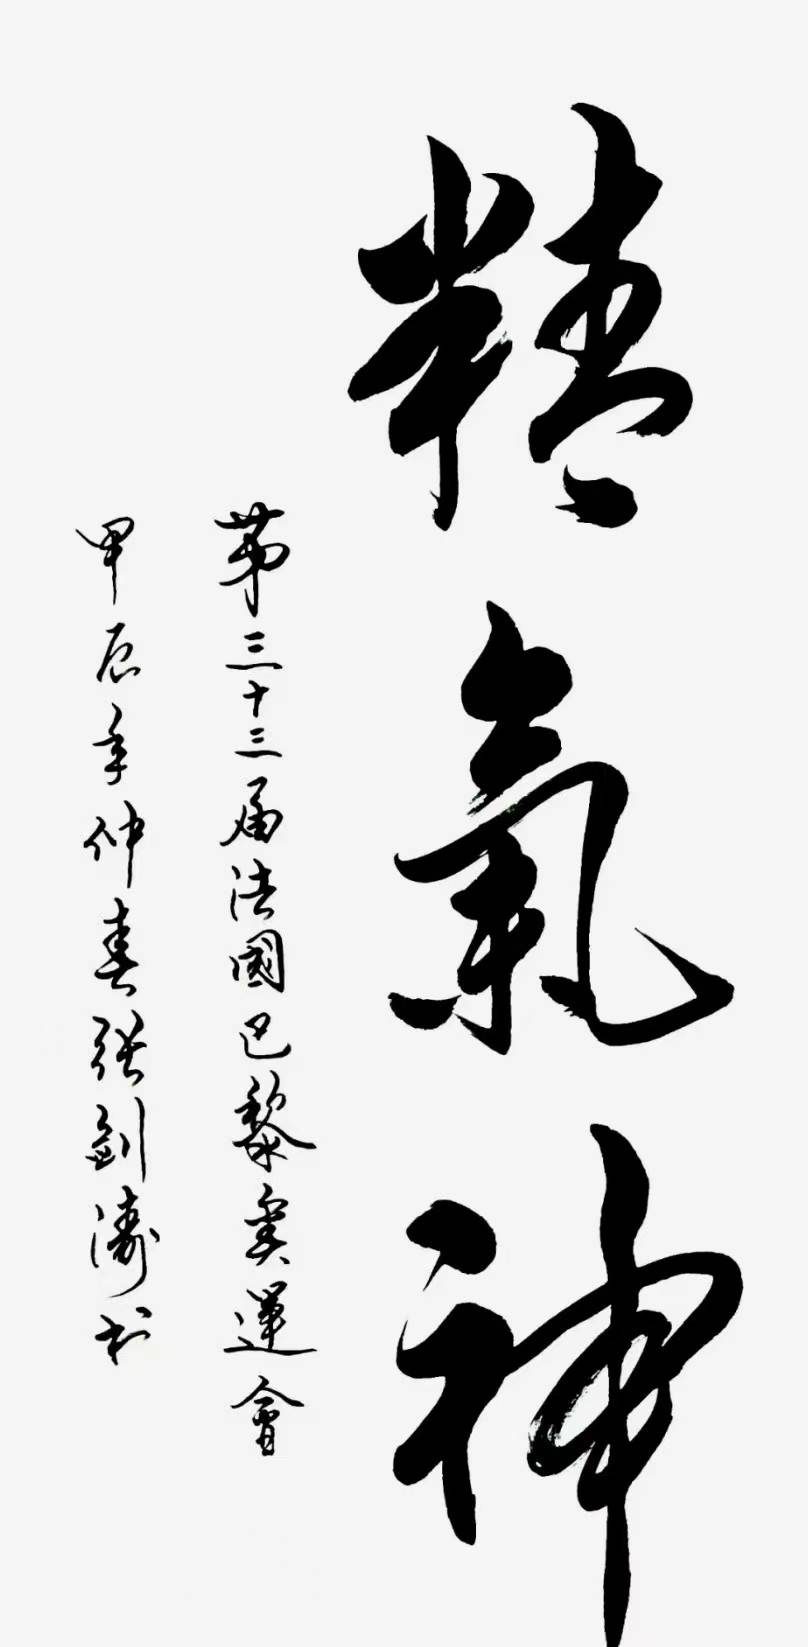 精氣神
第三十三届法國巴黎奧運會
甲辰年仲春張劍濤书